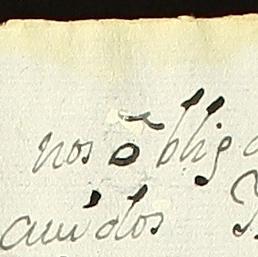 nos õ blig
auidos